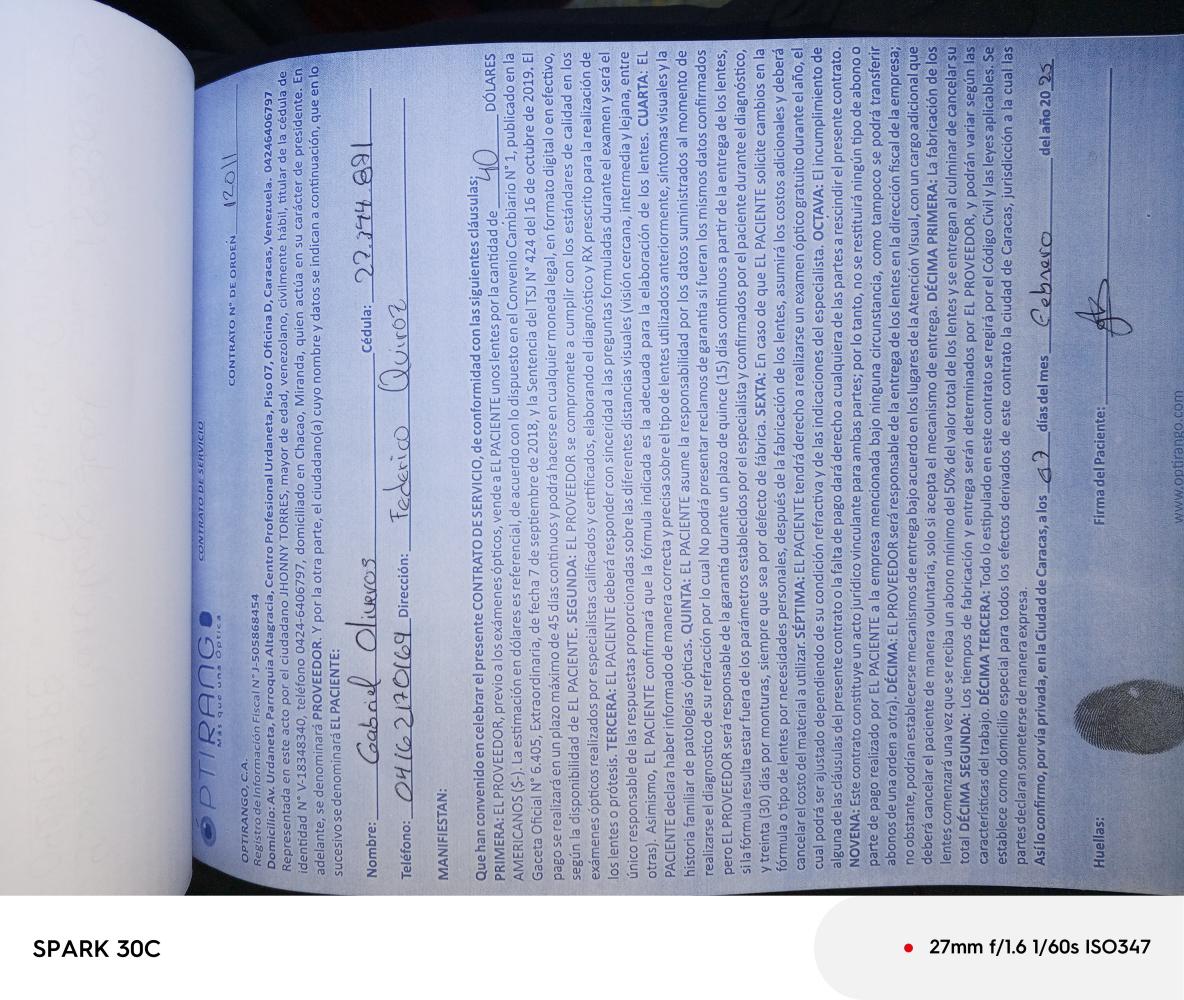 OPTIRANGO
Más que una Óptica
CONTRATO DE SERVICIO
CONTRATO N° DE ORDEN 12011
OPTIRANGO, C.A.
Registro de Información Fiscal N° J-505868454
Domicilio: Av. Urdaneta, Parroquia Altagracia, Centro Profesional Urdaneta, Piso 07, Oficina D, Caracas, Venezuela. 04246406797
Representada en este acto por el ciudadano JHONNY TORRES, mayor de edad, venezolano, civilmente hábil, titular de la cédula de
identidad N° V-18348340, teléfono 0424-6406797, domiciliado en Chacao, Miranda, quien actúa en su carácter de presidente. En
adelante, se denominará PROVEEDOR. Y por la otra parte, el ciudadano(a) cuyo nombre y datos se indican a continuación, que en lo
sucesivo se denominará EL PACIENTE:
Nombre: Gabriel Oliveros Cédula: 27.374.871
Teléfono: 04162170169 Dirección: Federico Quiroz
MANIFIESTAN:
Que han convenido en celebrar el presente CONTRATO DE SERVICIO, de conformidad con las siguientes cláusulas:
PRIMERA: EL PROVEEDOR, previo a los exámenes ópticos, vende a EL PACIENTE unos lentes por la cantidad de 40 DÓLARES
AMERICANOS ($-). La estimación en dólares es referencial, de acuerdo con lo dispuesto en el Convenio Cambiario N° 1, publicado en la
Gaceta Oficial N° 6.405, Extraordinaria, de fecha 7 de septiembre de 2018, y la Sentencia del TSJ N° 424 del 16 de octubre de 2019. El
pago se realizará en un plazo máximo de 45 días continuos y podrá hacerse en cualquier moneda legal, en formato digital o en efectivo,
según la disponibilidad de EL PACIENTE. SEGUNDA: EL PROVEEDOR se compromete a cumplir con los estándares de calidad en los
exámenes ópticos realizados por especialistas calificados y certificados, elaborando el diagnóstico y RX prescrito para la realización de
los lentes o prótesis. TERCERA: EL PACIENTE deberá responder con sinceridad a las preguntas formuladas durante el examen y será el
único responsable de las respuestas proporcionadas sobre las diferentes distancias visuales (visión cercana, intermedia y lejana, entre
otras). Asimismo, EL PACIENTE confirmará que la fórmula indicada es la adecuada para la elaboración de los lentes. CUARTA: EL
PACIENTE declara haber informado de manera correcta y precisa sobre el tipo de lentes utilizados anteriormente, síntomas visuales y la
historia familiar de patologías ópticas. QUINTA: EL PACIENTE asume la responsabilidad por los datos suministrados al momento de
realizarse el diagnostico de su refracción por lo cual No podrá presentar reclamos de garantía si fueran los mismos datos confirmados
pero EL PROVEEDOR será responsable de la garantía durante un plazo de quince (15) días continuos a partir de la entrega de los lentes,
si la fórmula resulta estar fuera de los parámetros establecidos por el especialista y confirmados por el paciente durante el diagnóstico,
y treinta (30) días por monturas, siempre que sea por defecto de fábrica. SEXTA: En caso de que EL PACIENTE solicite cambios en la
fórmula o tipo de lentes por necesidades personales, después de la fabricación de los lentes, asumirá los costos adicionales y deberá
cancelar el costo del material a utilizar. SÉPTIMA: EL PACIENTE tendrá derecho a realizarse un examen óptico gratuito durante el año, el
cual podrá ser ajustado dependiendo de su condición refractiva y de las indicaciones del especialista. OCTAVA: El incumplimiento de
alguna de las cláusulas del presente contrato o la falta de pago dará derecho a cualquiera de las partes a rescindir el presente contrato.
NOVENA: Este contrato constituye un acto jurídico vinculante para ambas partes; por lo tanto, no se restituirá ningún tipo de abono o
parte de pago realizado por EL PACIENTE a la empresa mencionada bajo ninguna circunstancia, como tampoco se podrá transferir
abonos de una orden a otra). DÉCIMA: EL PROVEEDOR será responsable de la entrega de los lentes en la dirección fiscal de la empresa;
no obstante, podrían establecerse mecanismos de entrega bajo acuerdo en los lugares de la Atención Visual, con un cargo adicional que
deberá cancelar el paciente de manera voluntaria, solo si acepta el mecanismo de entrega. DÉCIMA PRIMERA: La fabricación de los
lentes comenzará una vez que se reciba un abono mínimo del 50% del valor total de los lentes y se entregan al culminar de cancelar su
total DÉCIMA SEGUNDA: Los tiempos de fabricación y entrega serán determinados por EL PROVEEDOR, y podrán variar según las
características del trabajo. DÉCIMA TERCERA: Todo lo estipulado en este contrato se regirá por el Código Civil y las leyes aplicables. Se
establece como domicilio especial para todos los efectos derivados de este contrato la ciudad de Caracas, jurisdicción a la cual las
partes declaran someterse de manera expresa.
Así lo confirmo, por vía privada, en la Ciudad de Caracas, a los 07 días del mes Febrero del año 2025
Huellas: Firma del Paciente:
www.optirango.com
SPARK 30C
27mm f/1.6 1/60s ISO347